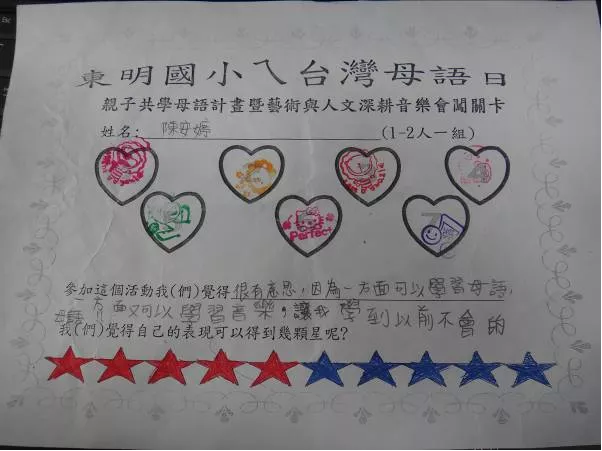 東明國小乀台灣母語日
親子共學母語計畫暨藝術與人文深耕音樂會闖關卡
姓名: 陳安婷 (1-2人一組)
Perfect
參加這個活動我(們)覺得很有意思,因為一方面可以學習母語,
一方面又可以學習音樂,讓我學到以前不會的
我(們)覺得自己的表現可以得到幾顆星呢?